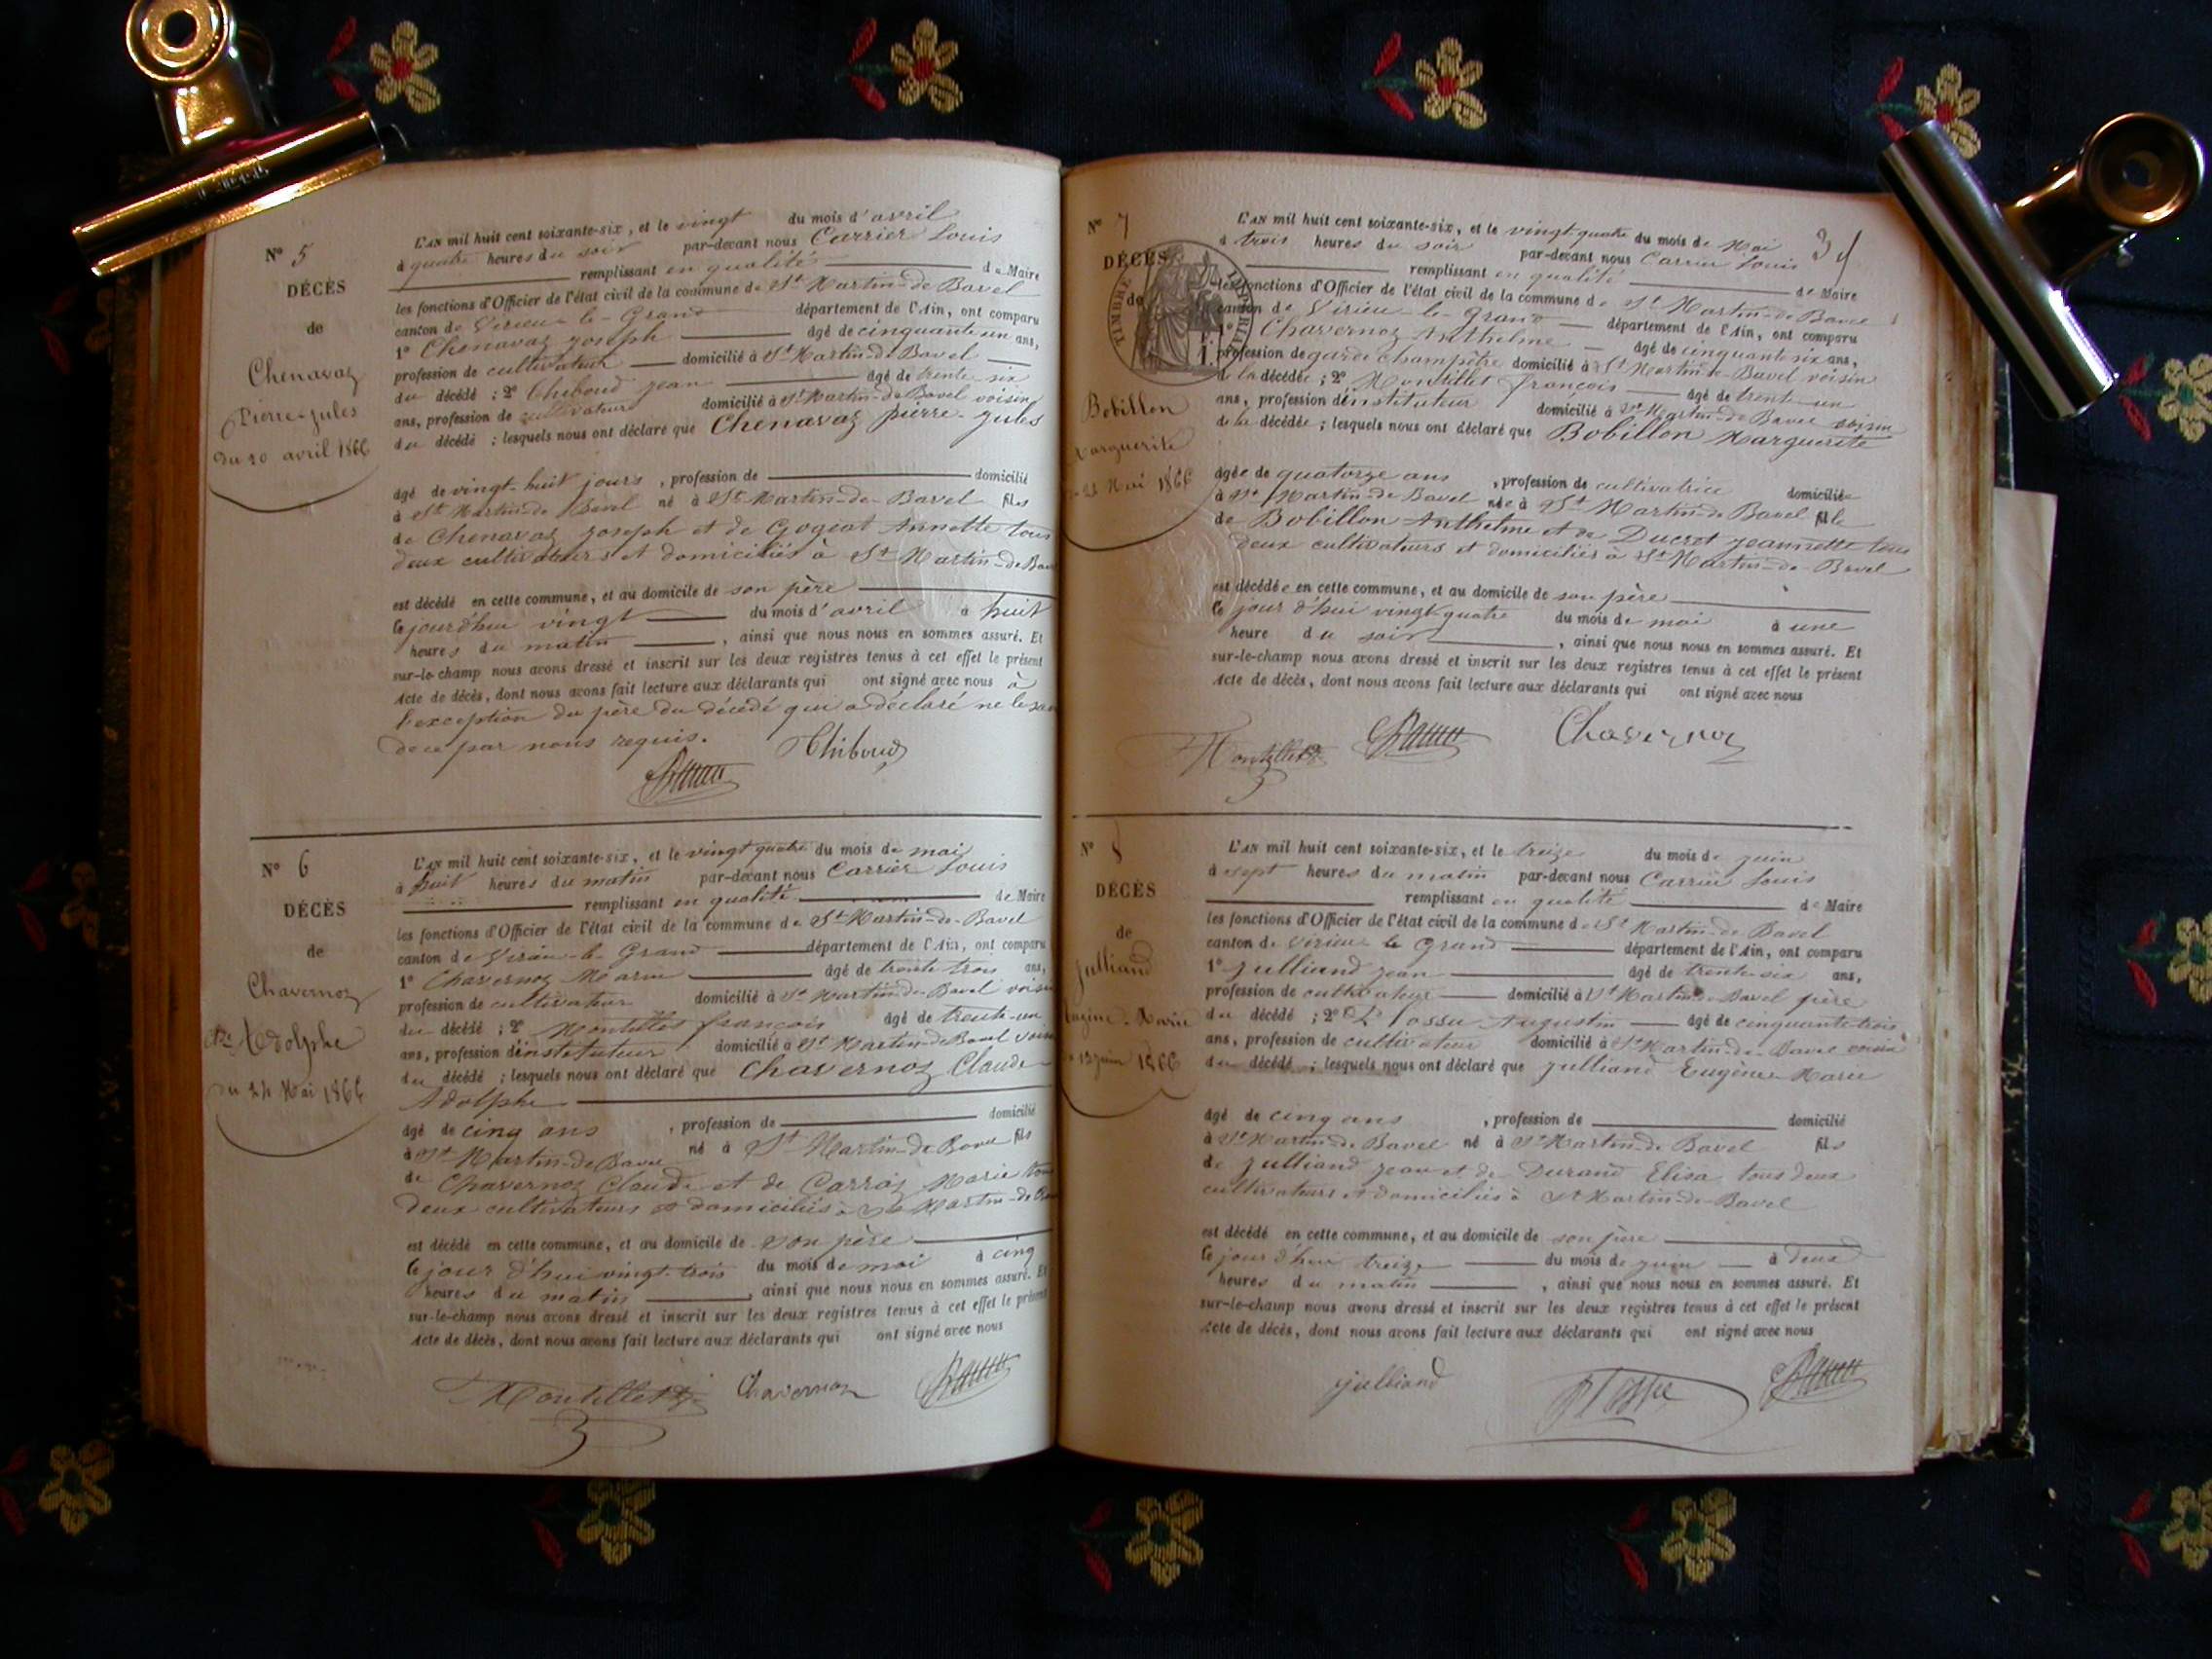 N° 5
DÉCÈS
de
Chenavaz
Pierre-Jules
du 20 avril 1866
L'AN mil huit cent soixante-six, et le vingt du mois d'avril
à quatre heures du soir par-devant nous Carrier Louis
remplissant en qualité de Maire
les fonctions d'Officier de l'état civil de la commune de St Martin-de Bavel
canton de Virieu-le-Grand département de l'Ain, ont comparu
1° Chenavaz Joseph âgé de cinquante un ans,
profession de cultivateur domicilié à St Martin-de Bavel
du décédé ; 2° Thiboud Jean âgé de trente-six
ans, profession de cultivateur domicilié à St Martin-de Bavel voisin
du décédé ; lesquels nous ont déclaré que Chenavaz Pierre-Jules
âgé de vingt-huit jours, profession de domicilié
à St Martin-de Bavel né à St Martin-de-Bavel fils
de Chenavaz Joseph et de Gogeat Annette tous
deux cultivateurs et domiciliés à St Martin-de Bavel
est décédé en cette commune, et au domicile de son père
le jourd'hui vingt du mois d'avril à huit
heures du matin, ainsi que nous nous en sommes assuré. Et
sur-le-champ nous avons dressé et inscrit sur les deux registres tenus à cet effet le présent
Acte de décès, dont nous avons fait lecture aux déclarants qui ont signé avec nous à
l'exception du père du décédé qui a déclaré ne le savoir
de ce par nous requis.
Thiboud
N° 6
DÉCÈS
de
Chavernoz
Adolphe
du 24 Mai 1866
L'AN mil huit cent soixante-six, et le vingt quatre du mois de mai
à huit heures du matin par-devant nous Carrier Louis
remplissant en qualité de Maire
les fonctions d'Officier de l'état civil de la commune de St Martin-de-Bavel
canton de Virieu-le-Grand département de l'Ain, ont comparu
1° Chavernoz âgé de trente trois ans,
profession de cultivateur domicilié à St Martin-de-Bavel voisin
du décédé ; 2° Montillet françois âgé de trente-un
ans, profession d'instituteur domicilié à St Martin-de Bavel voisin
du décédé ; lesquels nous ont déclaré que Chavernoz Claude
Adolphe
âgé de cinq ans, profession de domicilié
à St Martin-de Bavel né à St Martin-de Bavel fils
de Chavernoz Claude et de Carraz Marie tous
deux cultivateurs et domiciliés à St Martin-de Bavel
est décédé en cette commune, et au domicile de son père
le jour d'hui vingt-trois du mois de mai à cinq
heures du matin, ainsi que nous nous en sommes assuré. Et
sur-le-champ nous avons dressé et inscrit sur les deux registres tenus à cet effet le présent
Acte de décès, dont nous avons fait lecture aux déclarants qui ont signé avec nous
Montillet Chavernoz
N° 7
DÉCÈS
de
TIMBRE IMPERIAL
Bobillon
Marguerite
24 Mai 1866
L'AN mil huit cent soixante-six, et le vingt quatre du mois de Mai
à trois heures du soir par-devant nous Carrier Louis
remplissant en qualité de Maire
les fonctions d'Officier de l'état civil de la commune de St Martin-de Bavel
canton de Virieu-le-Grand département de l'Ain, ont comparu
1° Chavernoz Anthelme âgé de cinquante six ans,
profession de garde champêtre domicilié à St Martin-de-Bavel voisin
de la décédée ; 2° Montillet françois âgé de trente-un
ans, profession d'instituteur domicilié à St Martin-de Bavel voisin
de la décédée ; lesquels nous ont déclaré que Bobillon Marguerite
âgée de quatorze ans, profession de cultivatrice domiciliée
à St Martin-de Bavel née à St Martin-de Bavel fille
de Bobillon Anthelme et de Ducret Jeannette tous
deux cultivateurs et domiciliés à St Martin-de-Bavel
est décédée en cette commune, et au domicile de son père
le jour d'hui vingt quatre du mois de mai à une
heure du soir, ainsi que nous nous en sommes assuré. Et
sur-le-champ nous avons dressé et inscrit sur les deux registres tenus à cet effet le présent
Acte de décès, dont nous avons fait lecture aux déclarants qui ont signé avec nous
Montillet Chavernoz
N° 8
DÉCÈS
de
Julliand
Eugène-Marie
13 juin 1866
L'AN mil huit cent soixante-six, et le treize du mois de juin
à sept heures du matin par-devant nous Carrier Louis
remplissant en qualité de Maire
les fonctions d'Officier de l'état civil de la commune de St Martin-de Bavel
canton de Virieu le Grand département de l'Ain, ont comparu
1° Julliand Jean âgé de trente-six ans,
profession de cultivateur domicilié à St Martin-de-Bavel père
du décédé ; 2° Augustin âgé de cinquante-trois
ans, profession de cultivateur domicilié à St Martin-de-Bavel voisin
du décédé ; lesquels nous ont déclaré que Julliand Eugène-Marie
âgé de cinq ans, profession de domicilié
à St Martin-de Bavel né à St Martin-de Bavel fils
de Julliand Jean et de Durand Elisa tous deux
cultivateurs et domiciliés à St Martin-de-Bavel
est décédé en cette commune, et au domicile de son père
le jour d'hui treize du mois de juin à deux
heures du matin, ainsi que nous nous en sommes assuré. Et
sur-le-champ nous avons dressé et inscrit sur les deux registres tenus à cet effet le présent
Acte de décès, dont nous avons fait lecture aux déclarants qui ont signé avec nous
julliand